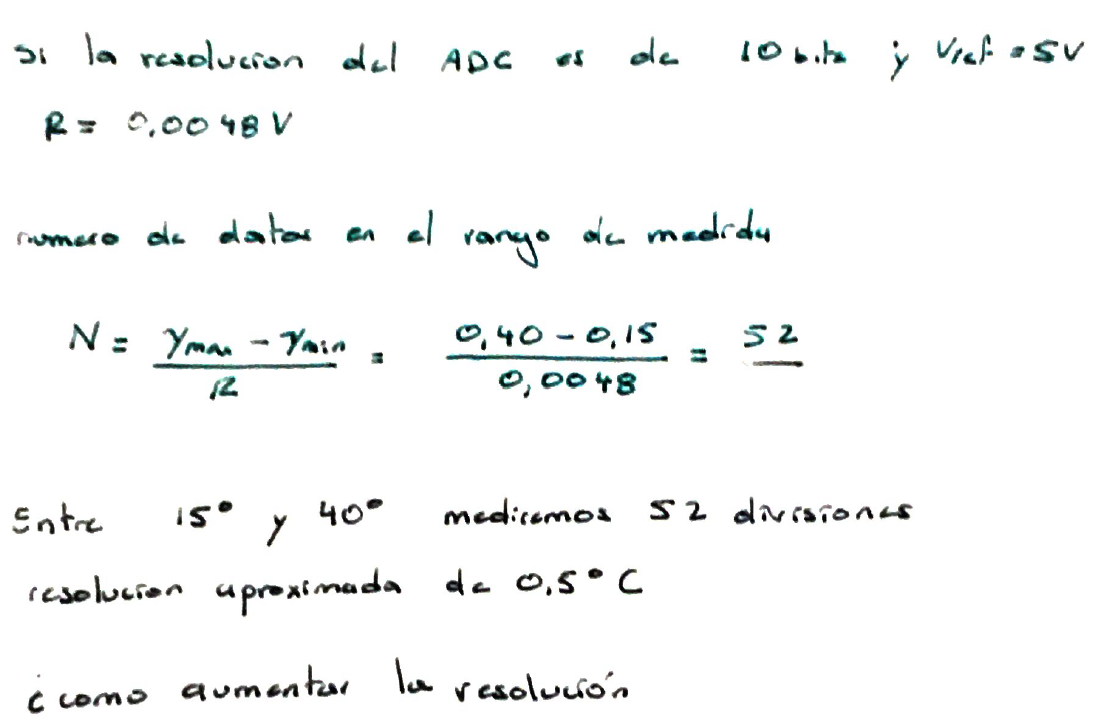 Si la resolucion del ADC es de 10 bits y Vref = 5V
R = 0,0048 V
numero de datos en el rango de medida
N = Ymax - Ymin / R = 0,40 - 0,15 / 0,0048 = 52
Entre 15° y 40° mediremos 52 divisiones
resolucion aproximada de 0,5° C
¿ como aumentar la resolución